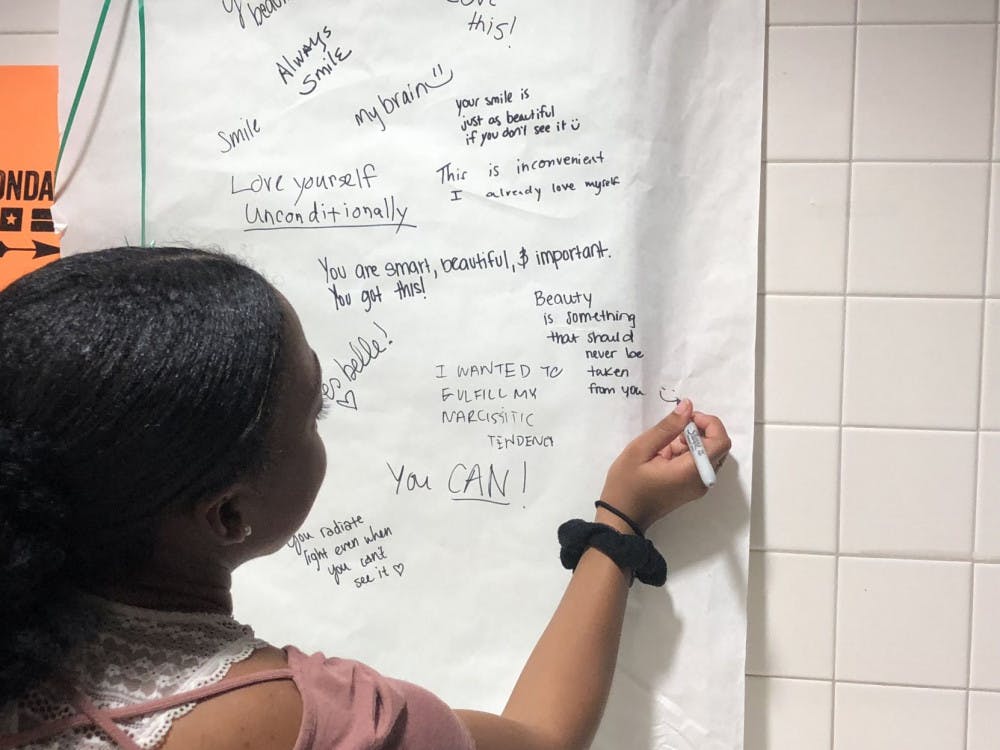 beautiful
this!
Always
Smile
my brain
your smile is
just as beautiful
if you don't see it
Smile
This is inconvenient
I already love myself
Love yourself
Unconditionally
You are smart, beautiful, & important.
You got this!
Beauty
is something
that should
never be
taken
from you
belle!
I WANTED TO
FULFILL MY
NARCISSITIC
TENDENCY
You CAN!
you radiate
light even when
you can't
see it
ONDA